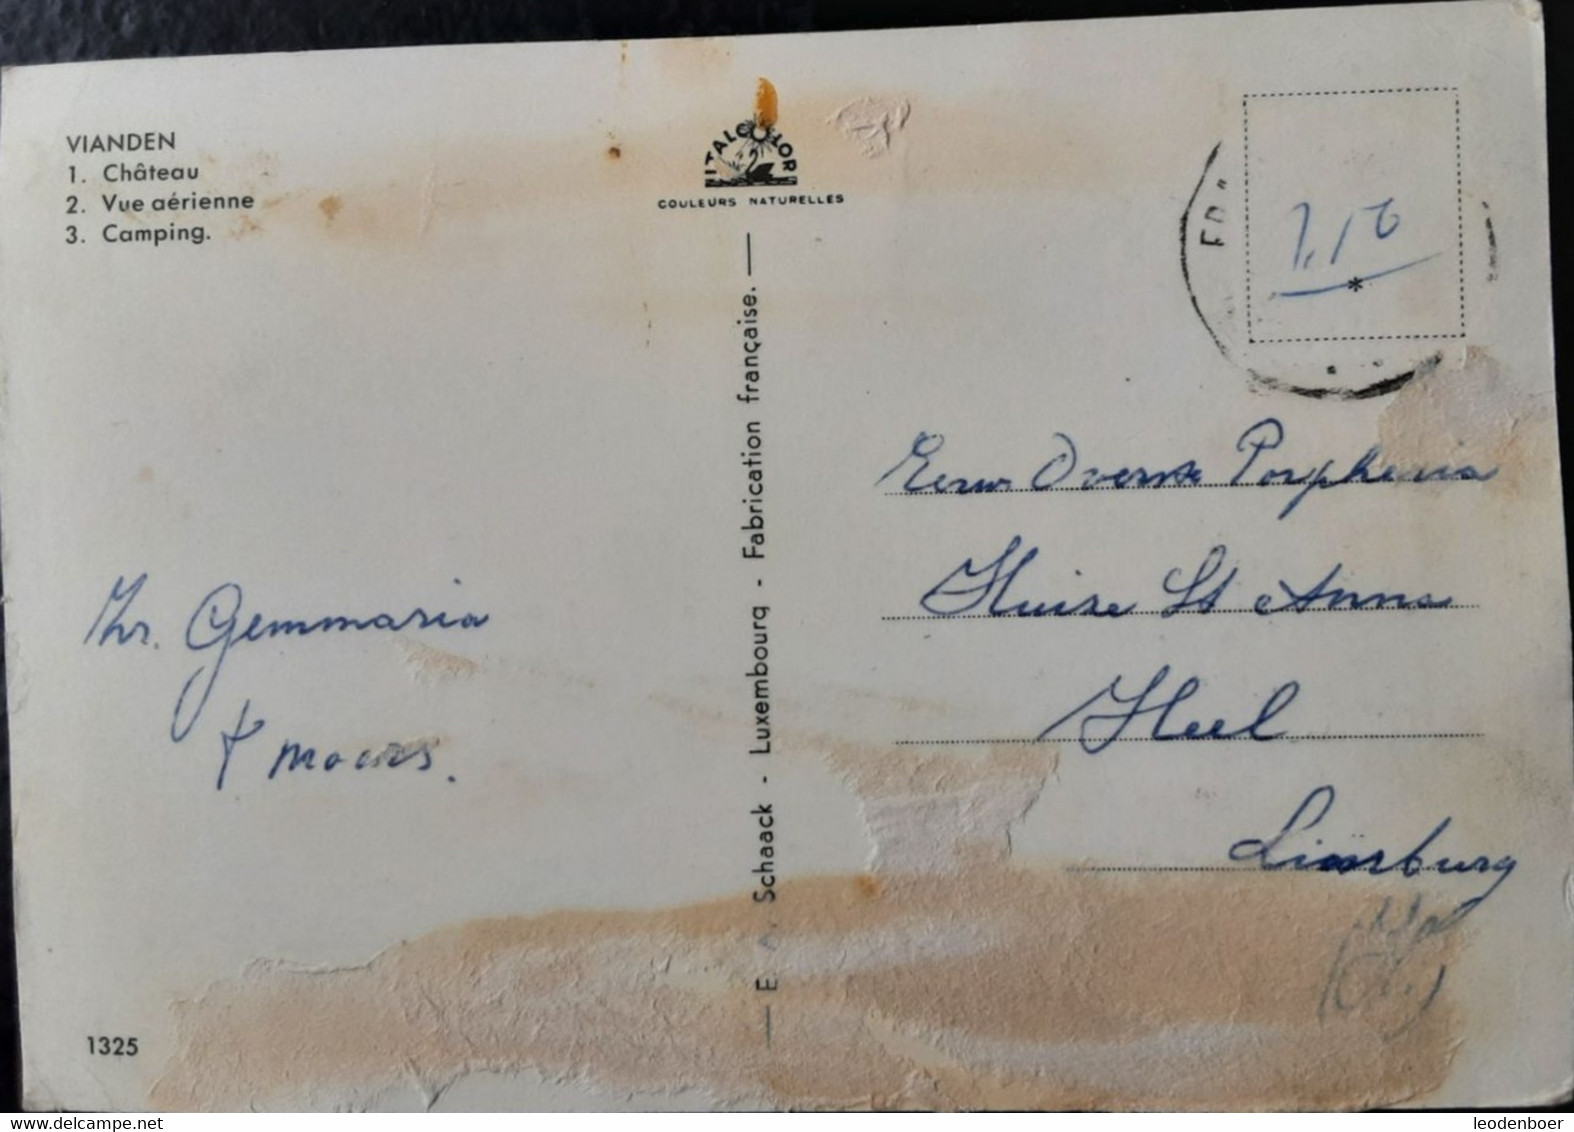 VIANDEN
1. Château
2. Vue aérienne
3. Camping.
ITALCOLOR
COULEURS NATURELLES
1,10
*
Eerw Overste Porpheria
Huize St Anna
Heel
Limburg
Zr. Gemmaria
+ moeders.
Schaack - Luxembourg - Fabrication française.
1325
www.delcampe.net
leodenboer